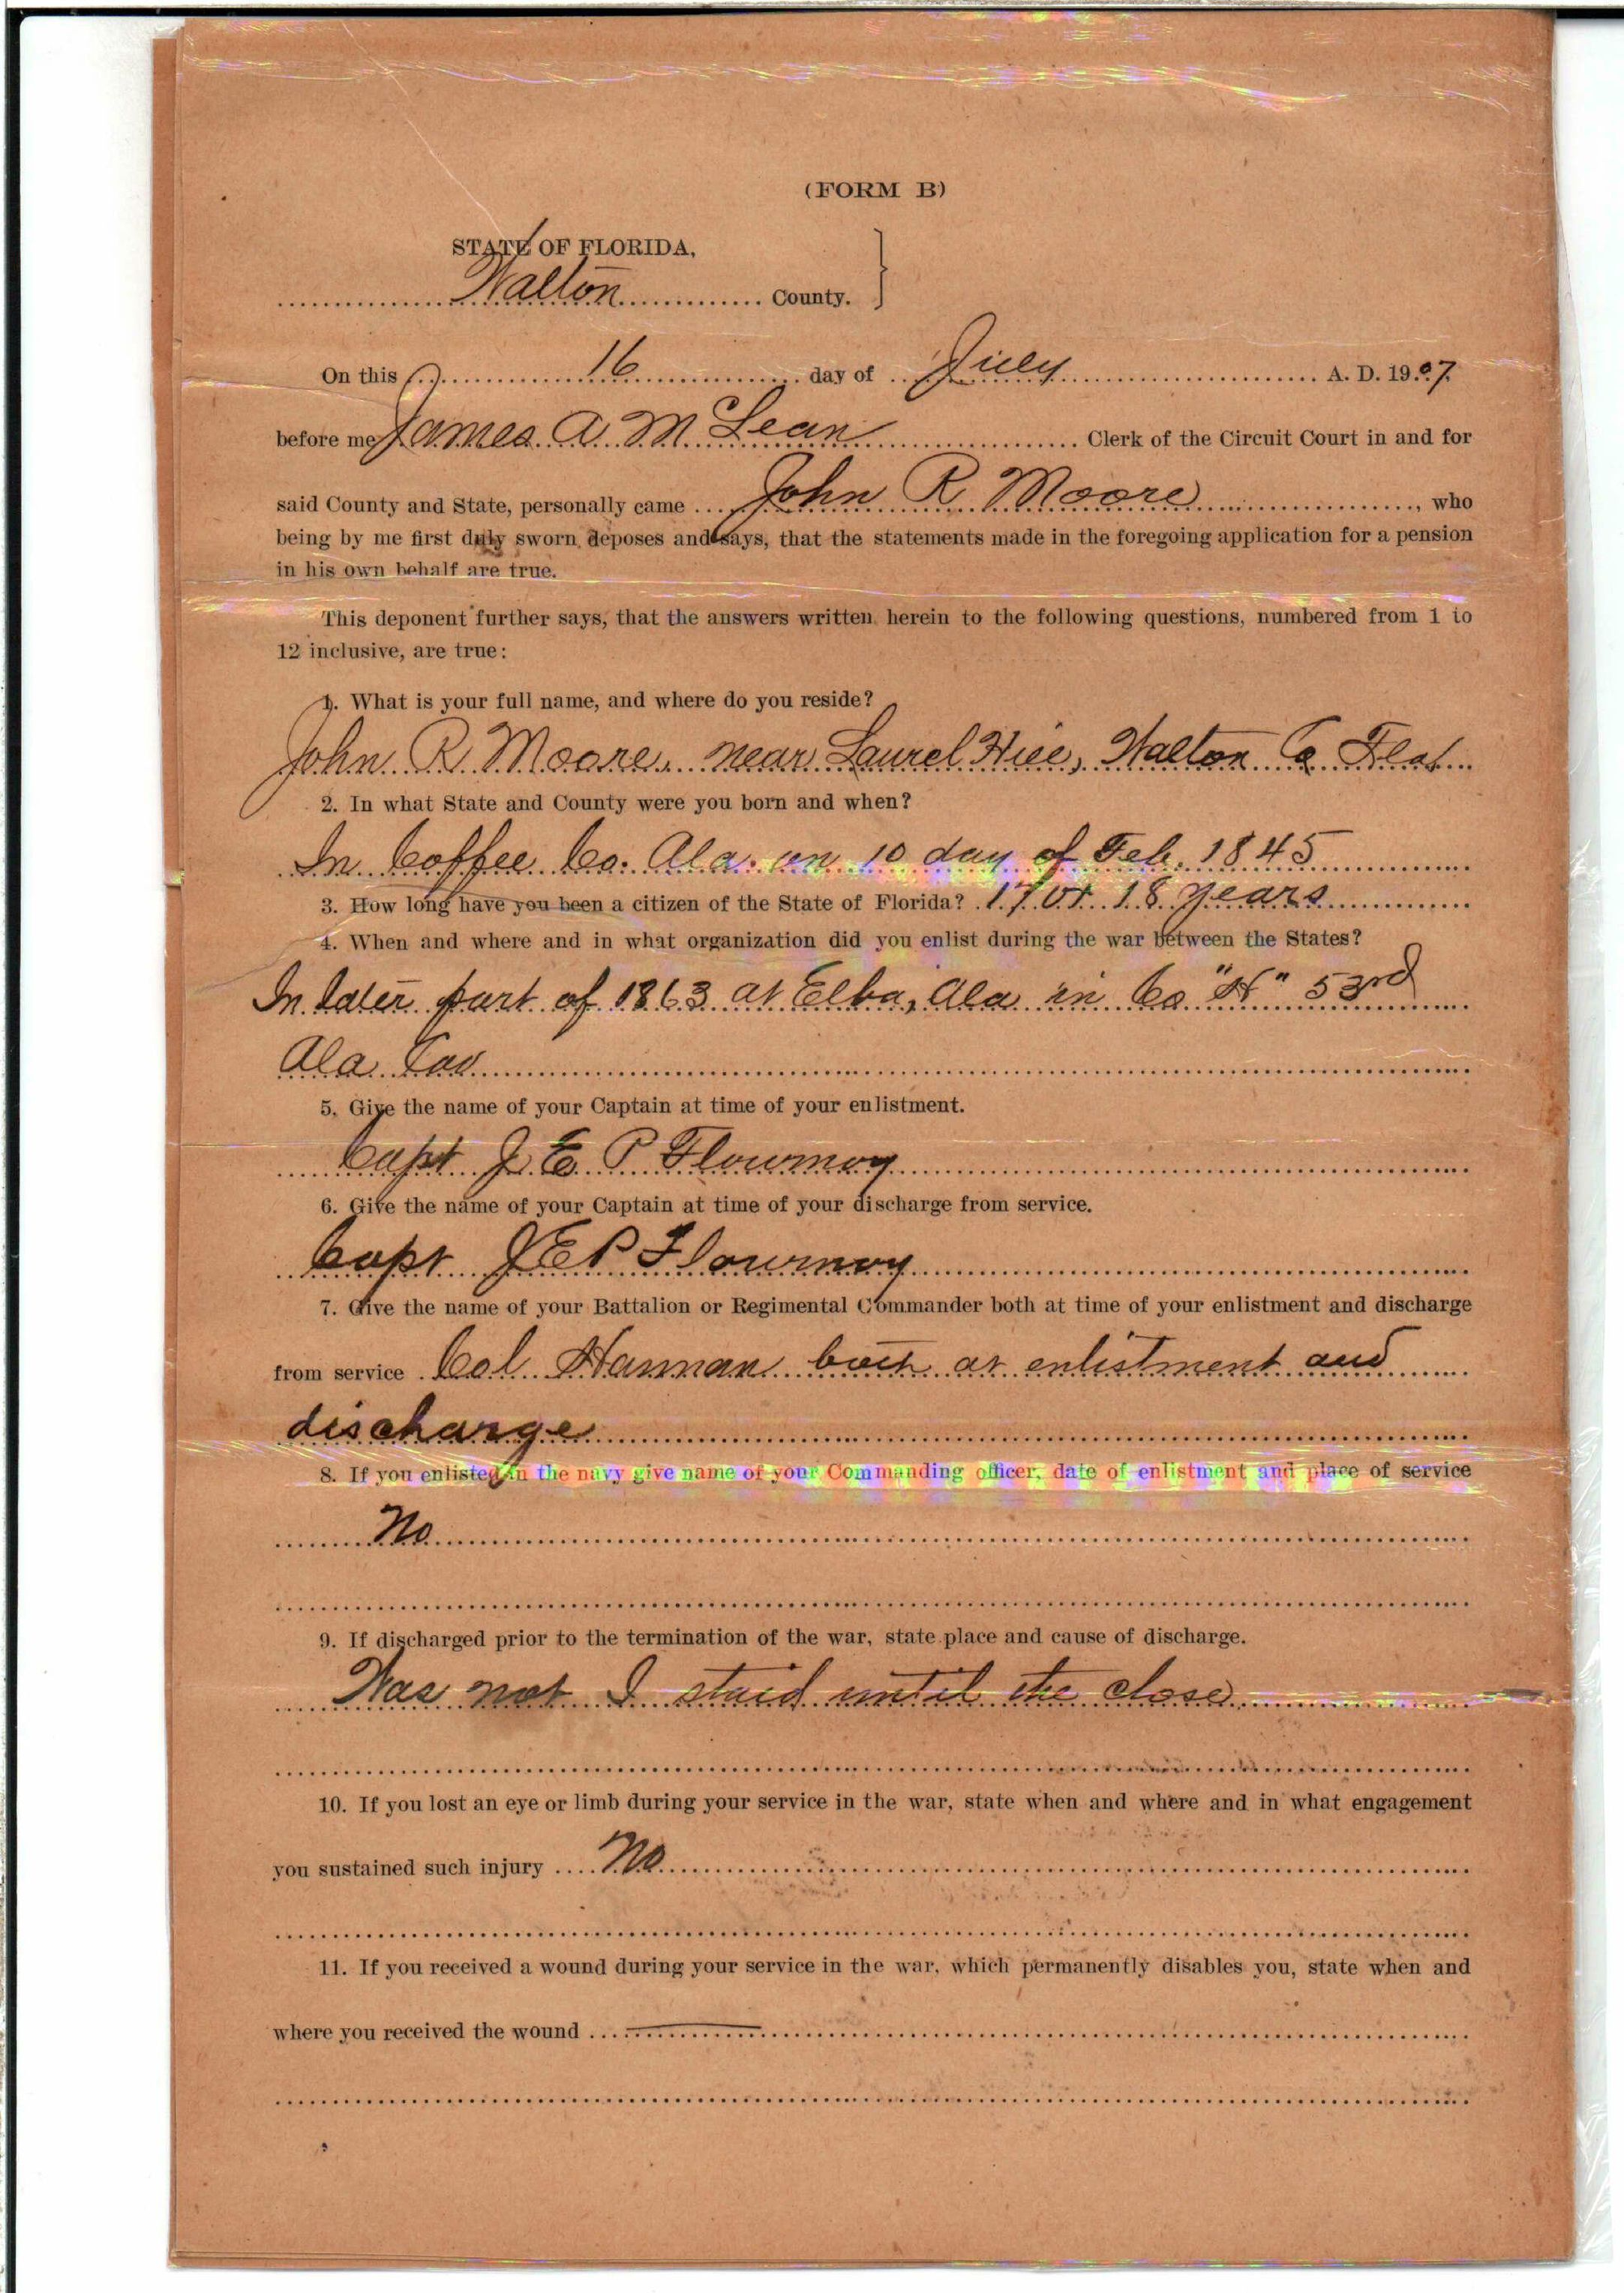 (FORM B)
STATE OF FLORIDA,
Walton County.
On this 16 day of July A. D. 1907.
before me James A. McLean Clerk of the Circuit Court in and for
said County and State, personally came John R Moore, who
being by me first duly sworn, deposes and says, that the statements made in the foregoing application for a pension
in his own behalf are true.
This deponent further says, that the answers written herein to the following questions, numbered from 1 to
12 inclusive, are true:
1. What is your full name, and where do you reside?
John R Moore, near Laurel Hill, Walton Co Fla
2. In what State and County were you born and when?
In Coffee Co. Ala. on 10 day of Feb. 1845
3. How long have you been a citizen of the State of Florida? 17 or 18 years
4. When and where and in what organization did you enlist during the war between the States?
In later part of 1863 at Elba, Ala in Co "H" 53rd
Ala Cav
5. Give the name of your Captain at time of your enlistment.
Capt J. E. P. Flournoy
6. Give the name of your Captain at time of your discharge from service.
Capt J E P Flournoy
7. Give the name of your Battalion or Regimental Commander both at time of your enlistment and discharge
from service Col Hannan both at enlistment and
discharge
8. If you enlisted in the navy give name of your Commanding officer, date of enlistment and place of service
No
9. If discharged prior to the termination of the war, state place and cause of discharge.
Was not I staid until the close
10. If you lost an eye or limb during your service in the war, state when and where and in what engagement
you sustained such injury No
11. If you received a wound during your service in the war, which permanently disables you, state when and
where you received the wound